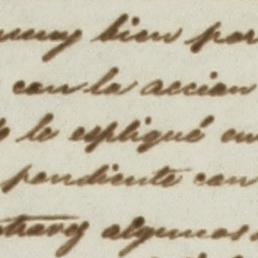 muy bien por
con la accion
le expliqué en
pondiente con
algunos